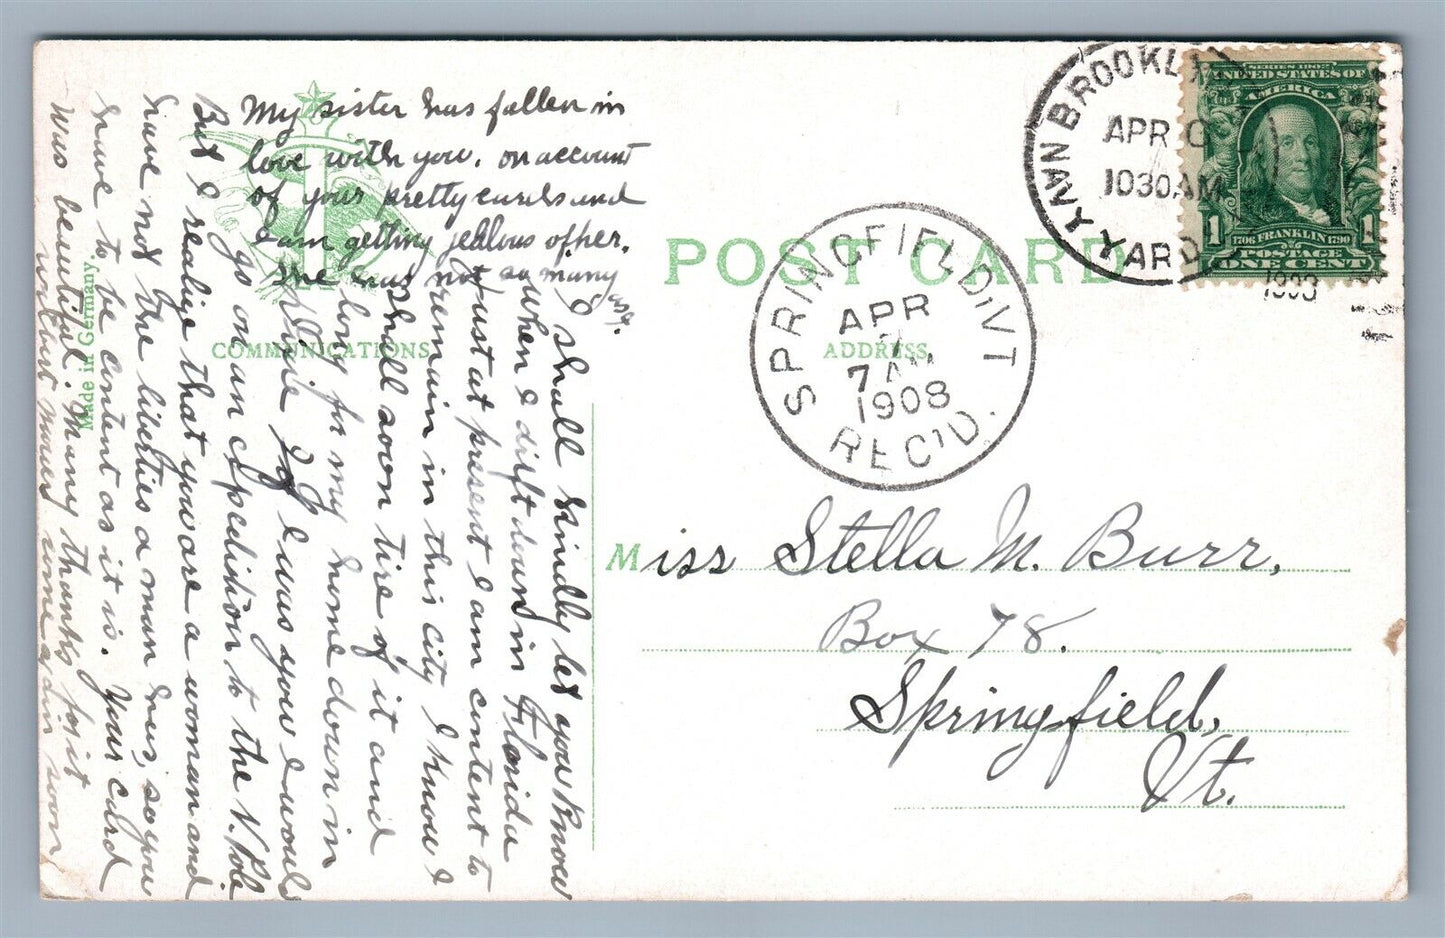 My sister has fallen in
love with you. on account
of your pretty cards and
I am getting jealous of her.
she has not so many
as I.
I shall kindly let you know
when I drift down in Florida
Just at present I am content to
remain in this city I know I
shall soon tire of it and
long for my home down in
Dixie If I was you I would
go on an Expedition to the N. Pole
But I realize that you are a woman and
have not the liberties a man has, so you
have to be content as it is. Your card
was beautiful. Many thanks for it
soon
Made in Germany.
COMMUNICATIONS
POST CARD
ADDRESS
SPRINGFIELD, VT
APR
7 AM
1908
REC'D.
NAVY YARD
BROOKLY
APR
1030AM
SERIES 1902
UNITED STATES OF
AMERICA
1 1
1706 FRANKLIN 1790
POSTAGE
ONE CENT
Miss Stella M. Burr,
Box 78.
Springfield,
Vt.